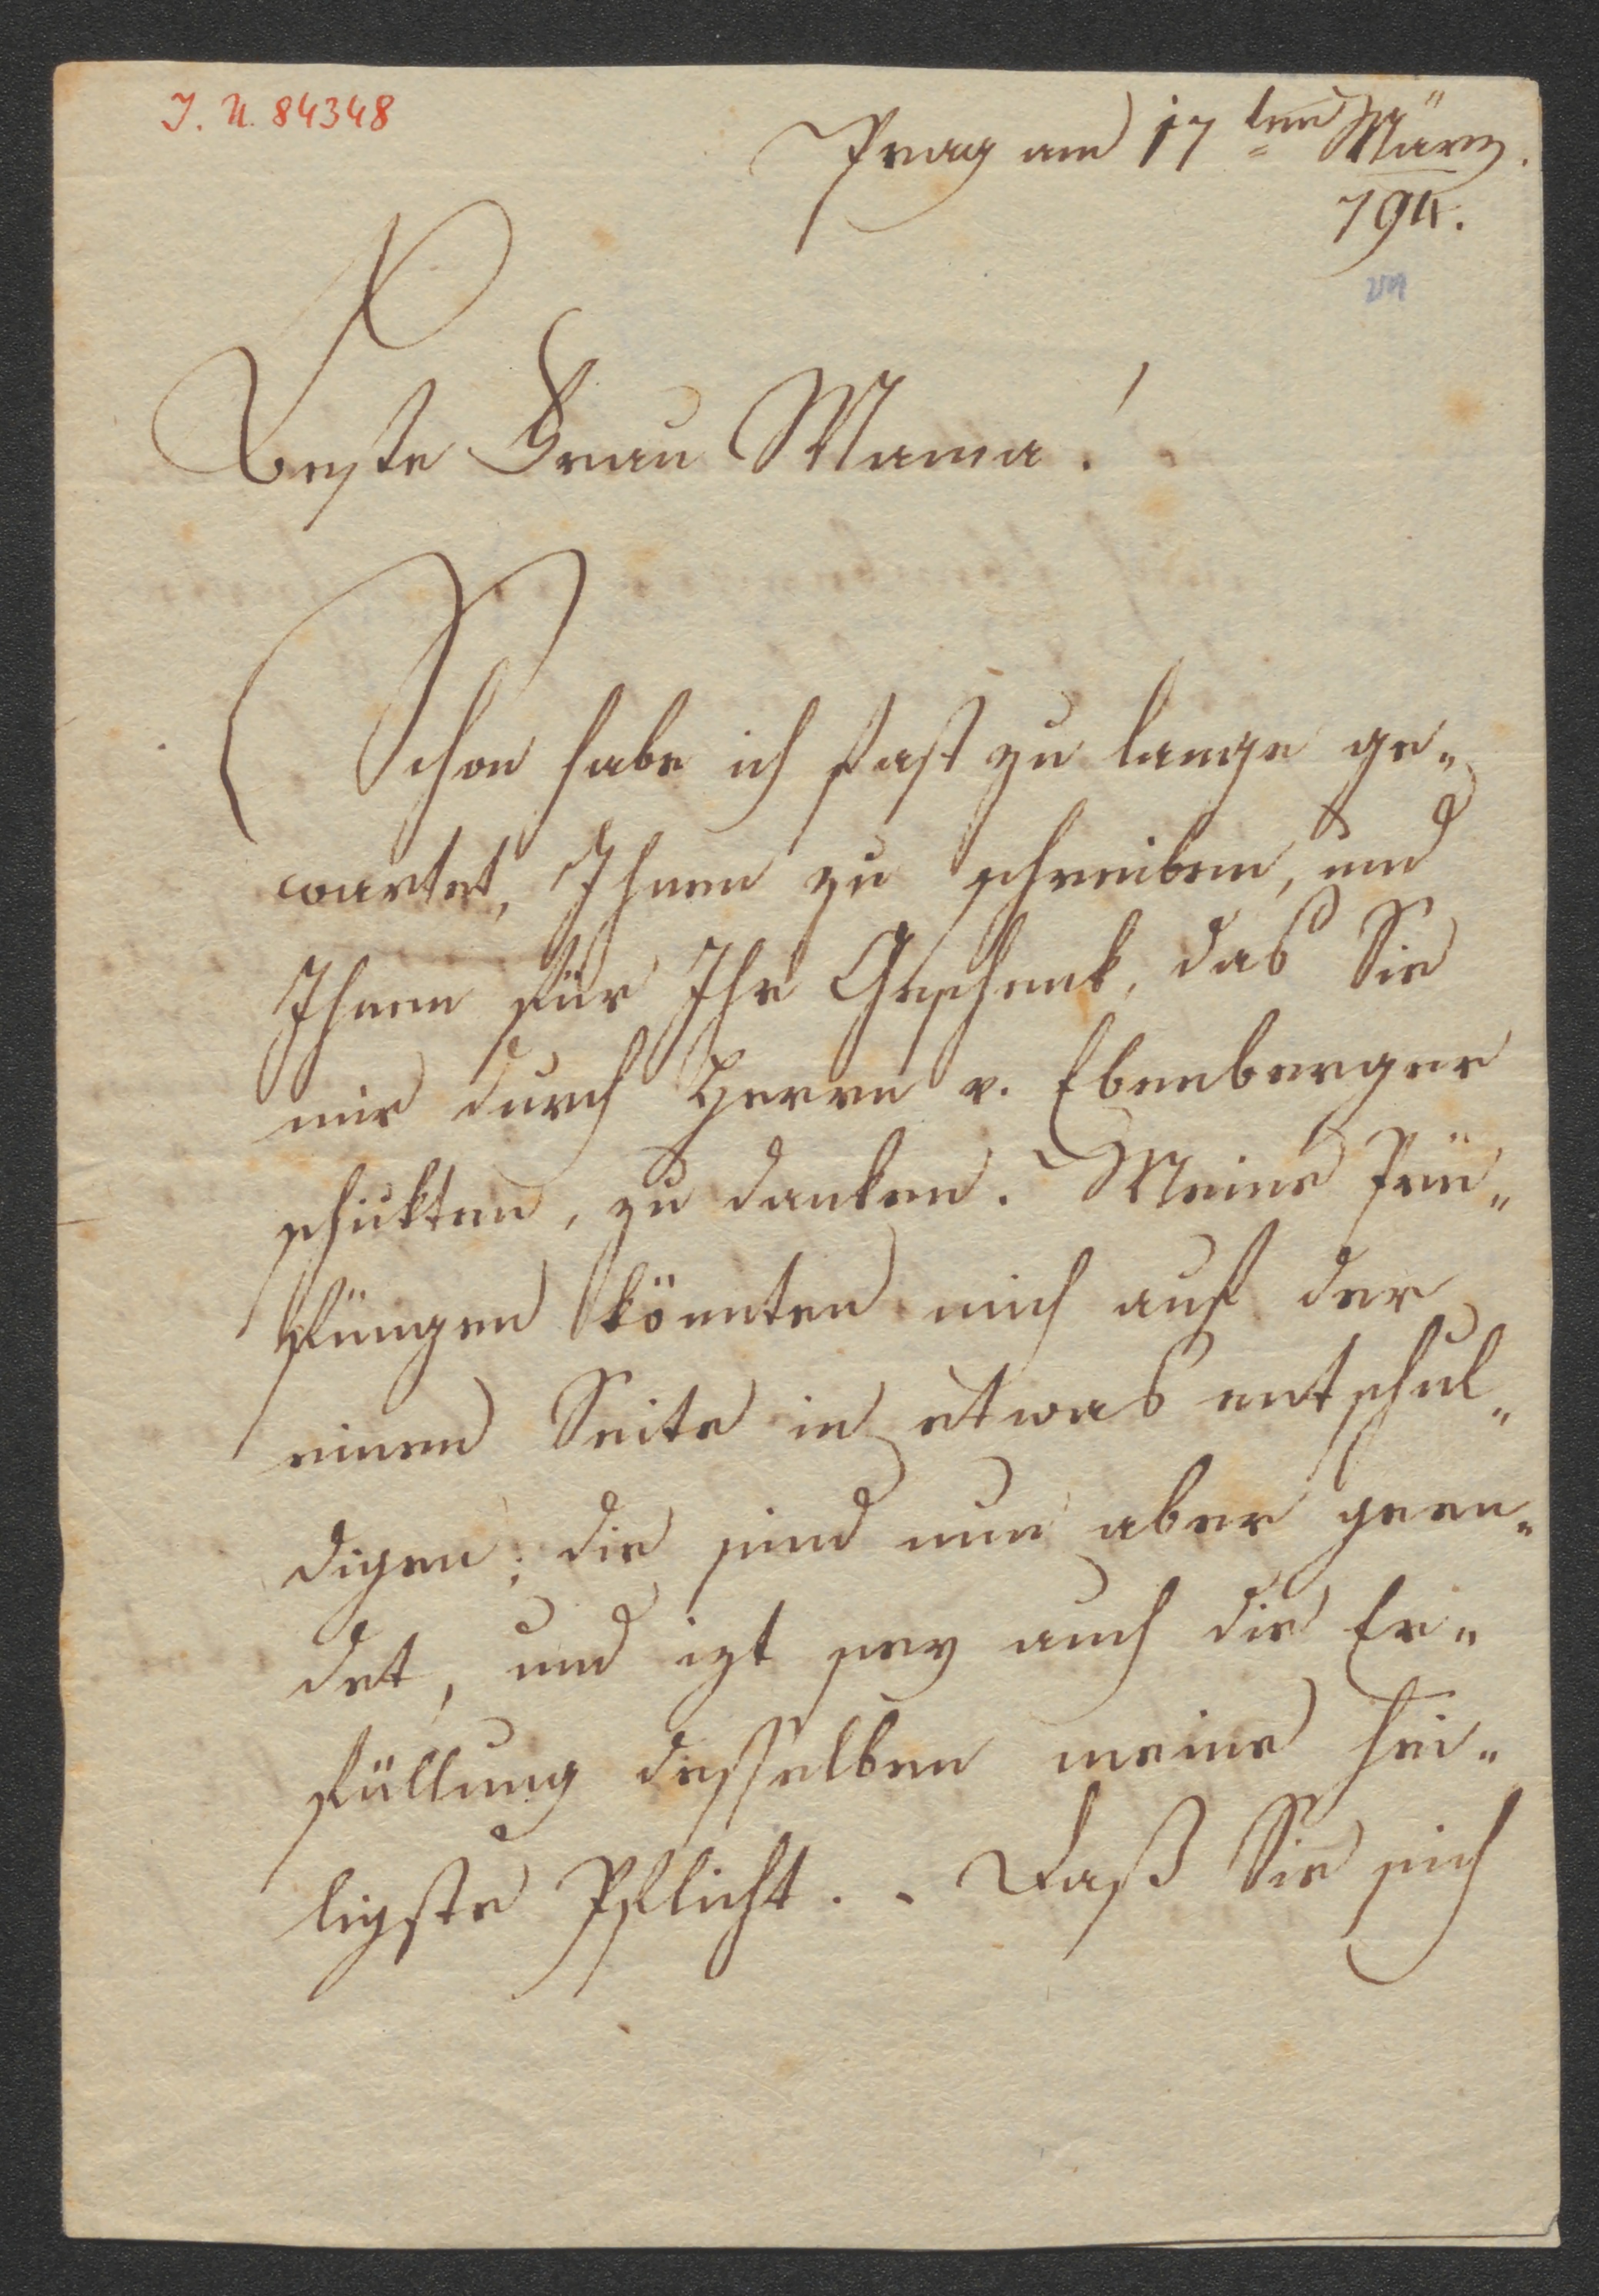 I. N. 84348
Prag am 17ten März.
794.
Beste Frau Mama!
Schon habe ich fast zu lange ge„
wartet, Ihnen zu schreiben, und
Ihnen für Ihr Geschenk, das Sie
mir durch Herrn v. Ebenberger
schickten, zu danken. Meine Prü„
fungen könnten mich auf der
einen Seite in etwas entschul„
digen; die sind nun aber geen„
det, und izt sey auch die Er„
füllung desselben meine hei„
ligste Pflicht. . Daß Sie sich